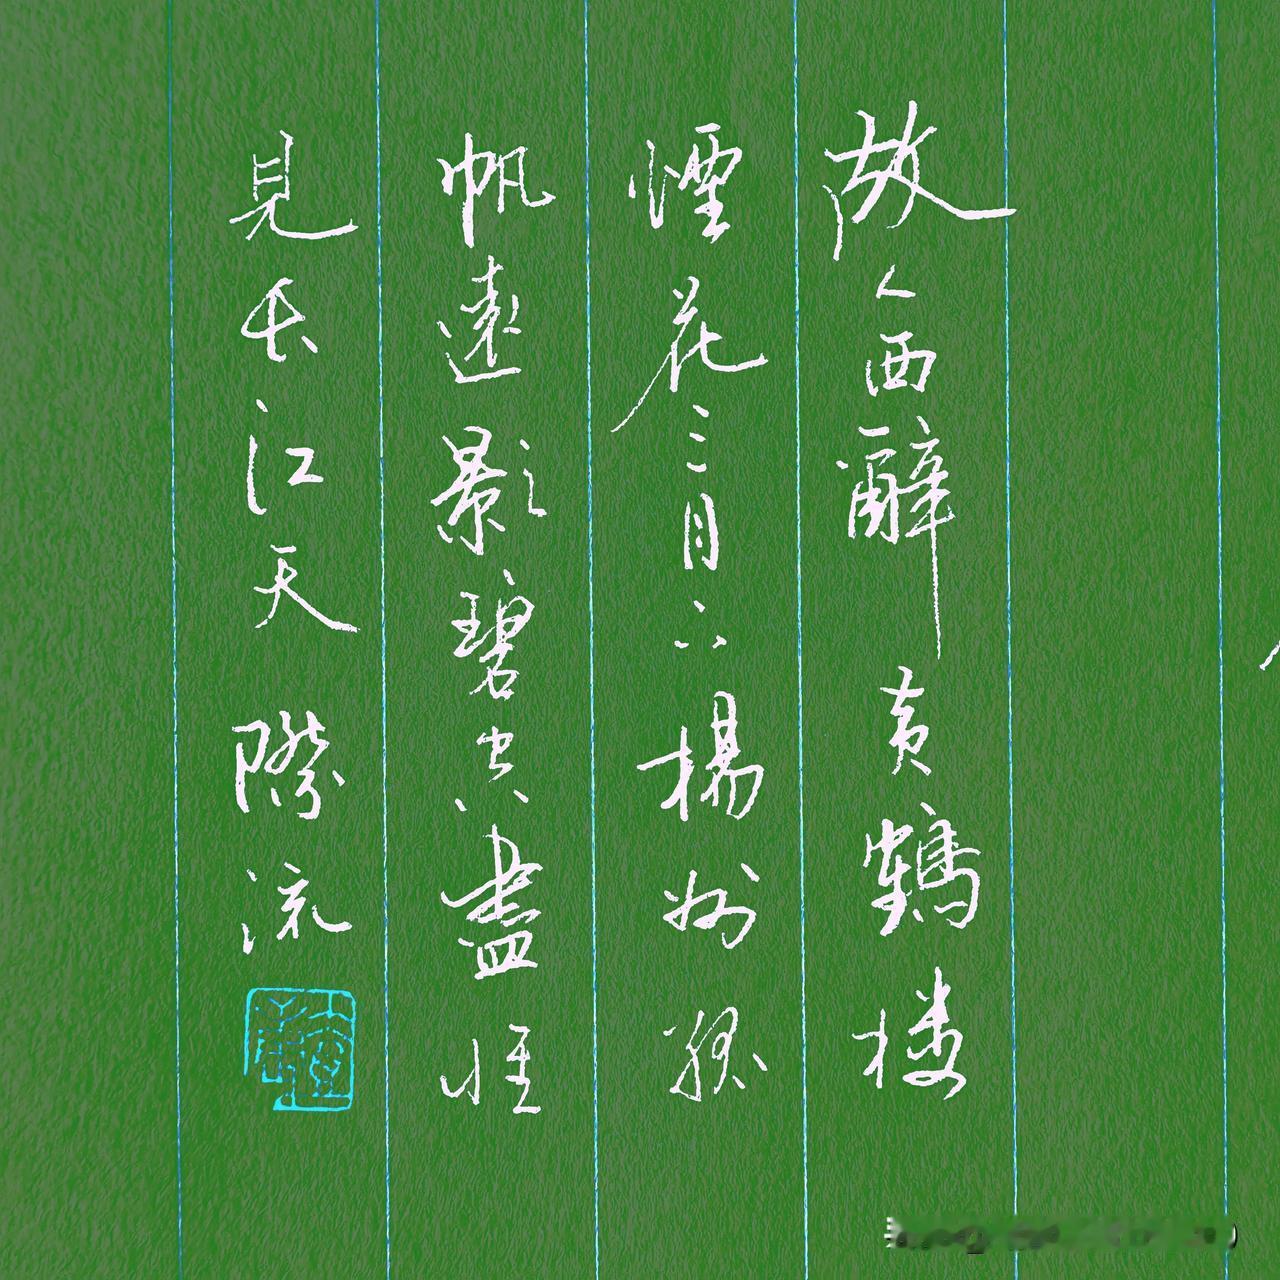 故人西辭黄鶴楼
煙花三月下楊州孤
帆遠影碧空盡惟
見长江天際流